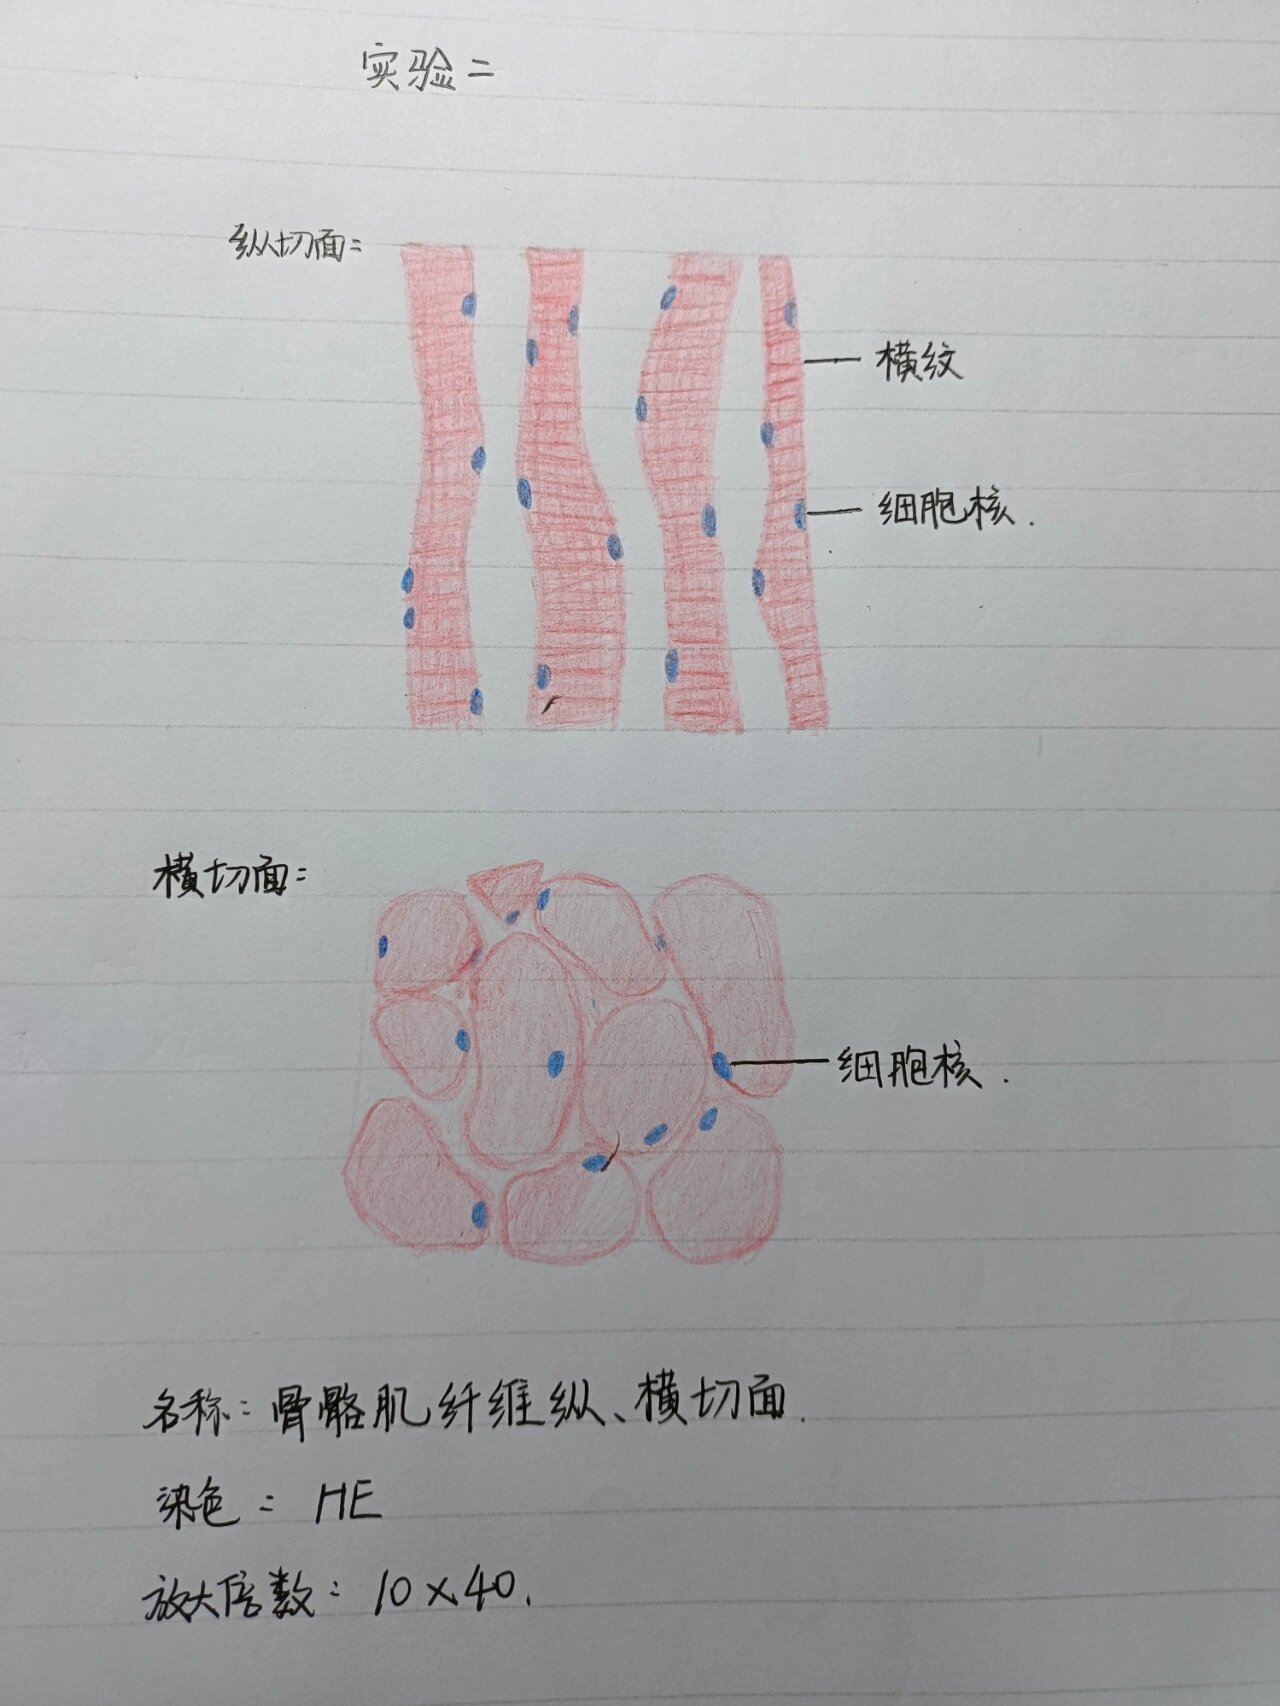 实验二
纵切面:
横纹
细胞核.
横切面:
细胞核.
名称:骨骼肌纤维纵、横切面.
染色:HE
放大倍数:10×40.